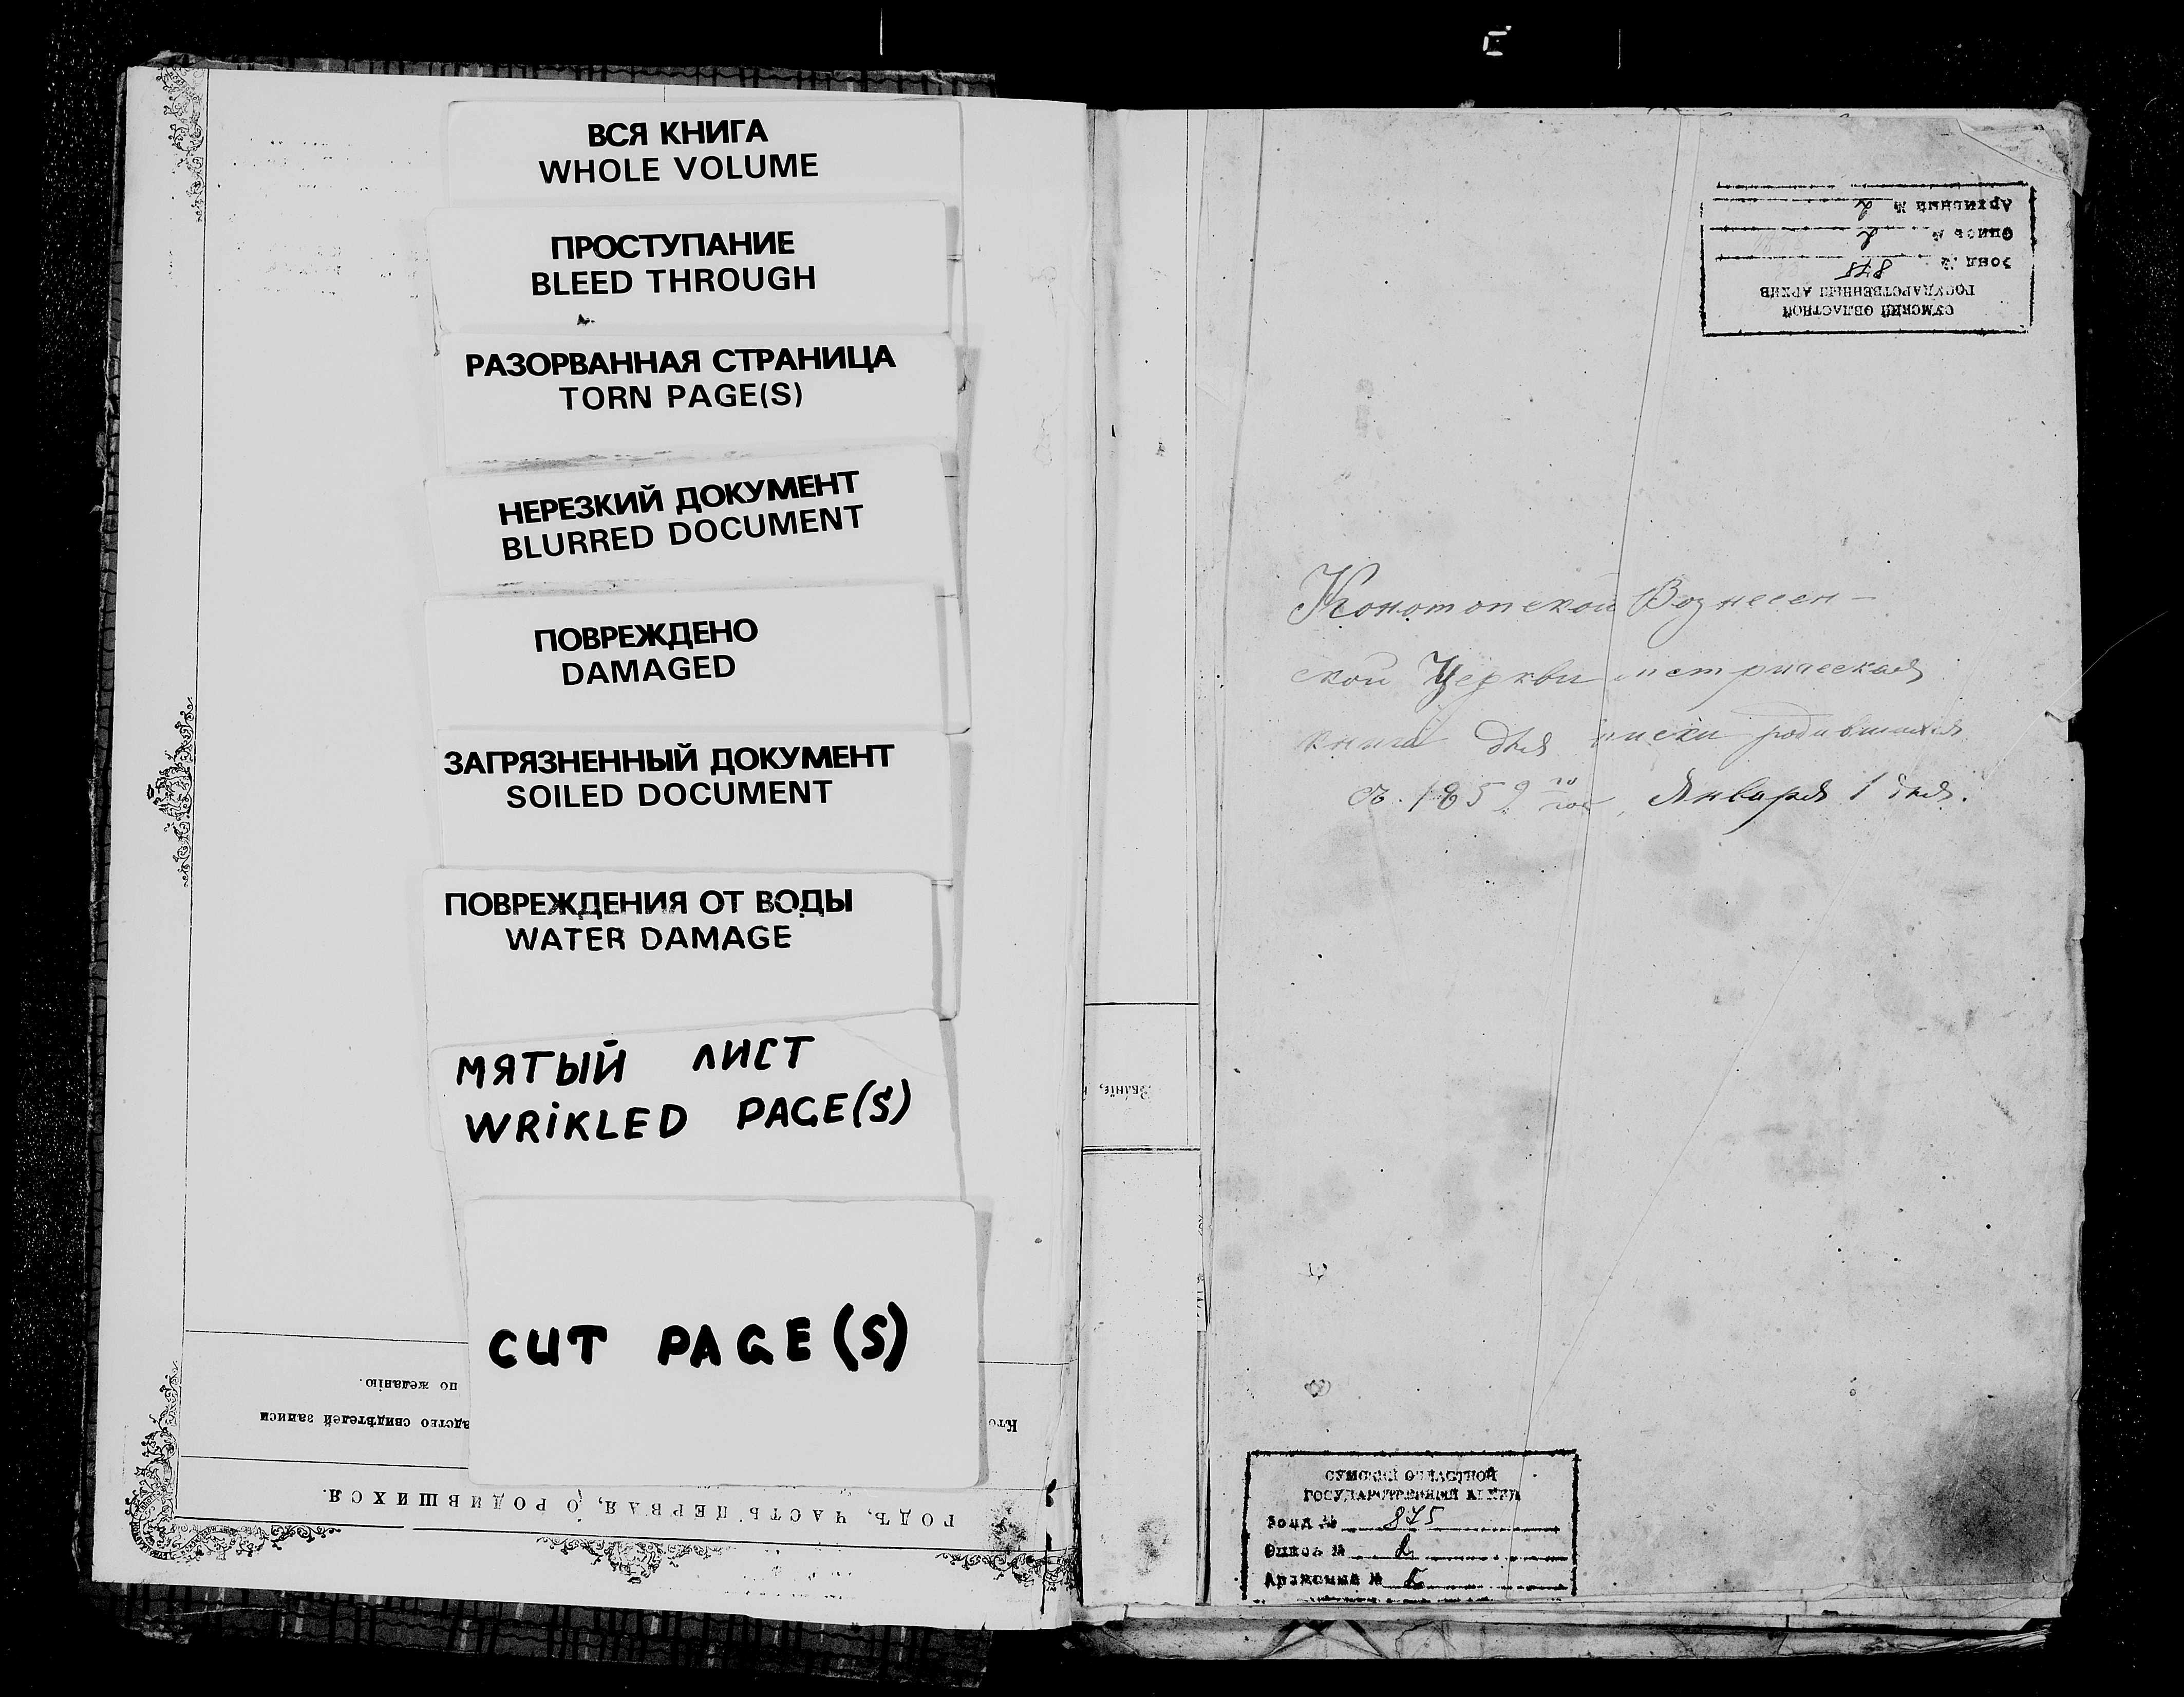 ВСЯ КНИГА
WHOLE VOLUME
ПРОСТУПАНИЕ
BLEED THROUGH
РАЗОРВАННАЯ СТРАНИЦА
TORN PAGE(S)
НЕРЕЗКИЙ ДОКУМЕНТ
BLURRED DOCUMENT
ПОВРЕЖДЕНО
DAMAGED
ЗАГРЯЗНЕННЫЙ ДОКУМЕНТ
SOILED DOCUMENT
ПОВРЕЖДЕНИЯ ОТ ВОДЫ
WATER DAMAGE
МЯТЫЙ ЛИСТ
WRiKLED PAGE(S)
CUT PAGE(S)
ГОДЪ, ЧАСТЬ ПЕРВАЯ, О РОДИВШИХСЯ.
Кто
дство свидѣтелей записи
по желанію.
Званіе,
СУМСКИЙ ОБЛАСТНОЙ
ГОСУДАРСТВЕННЫЙ АРХИВ
Фонд № 875
Опись № 2
Архивный № 2
Конотопской Вознесен-
ской Церкви метрическая
книга для писки родившихся
съ 1859 го года, Января 1 дня.
СУМСКИЙ ОБЛАСТНОЙ
ГОСУДАРСТВЕННЫЙ АРХИВ
Фонд № 875
Опись № 2
Архивный №